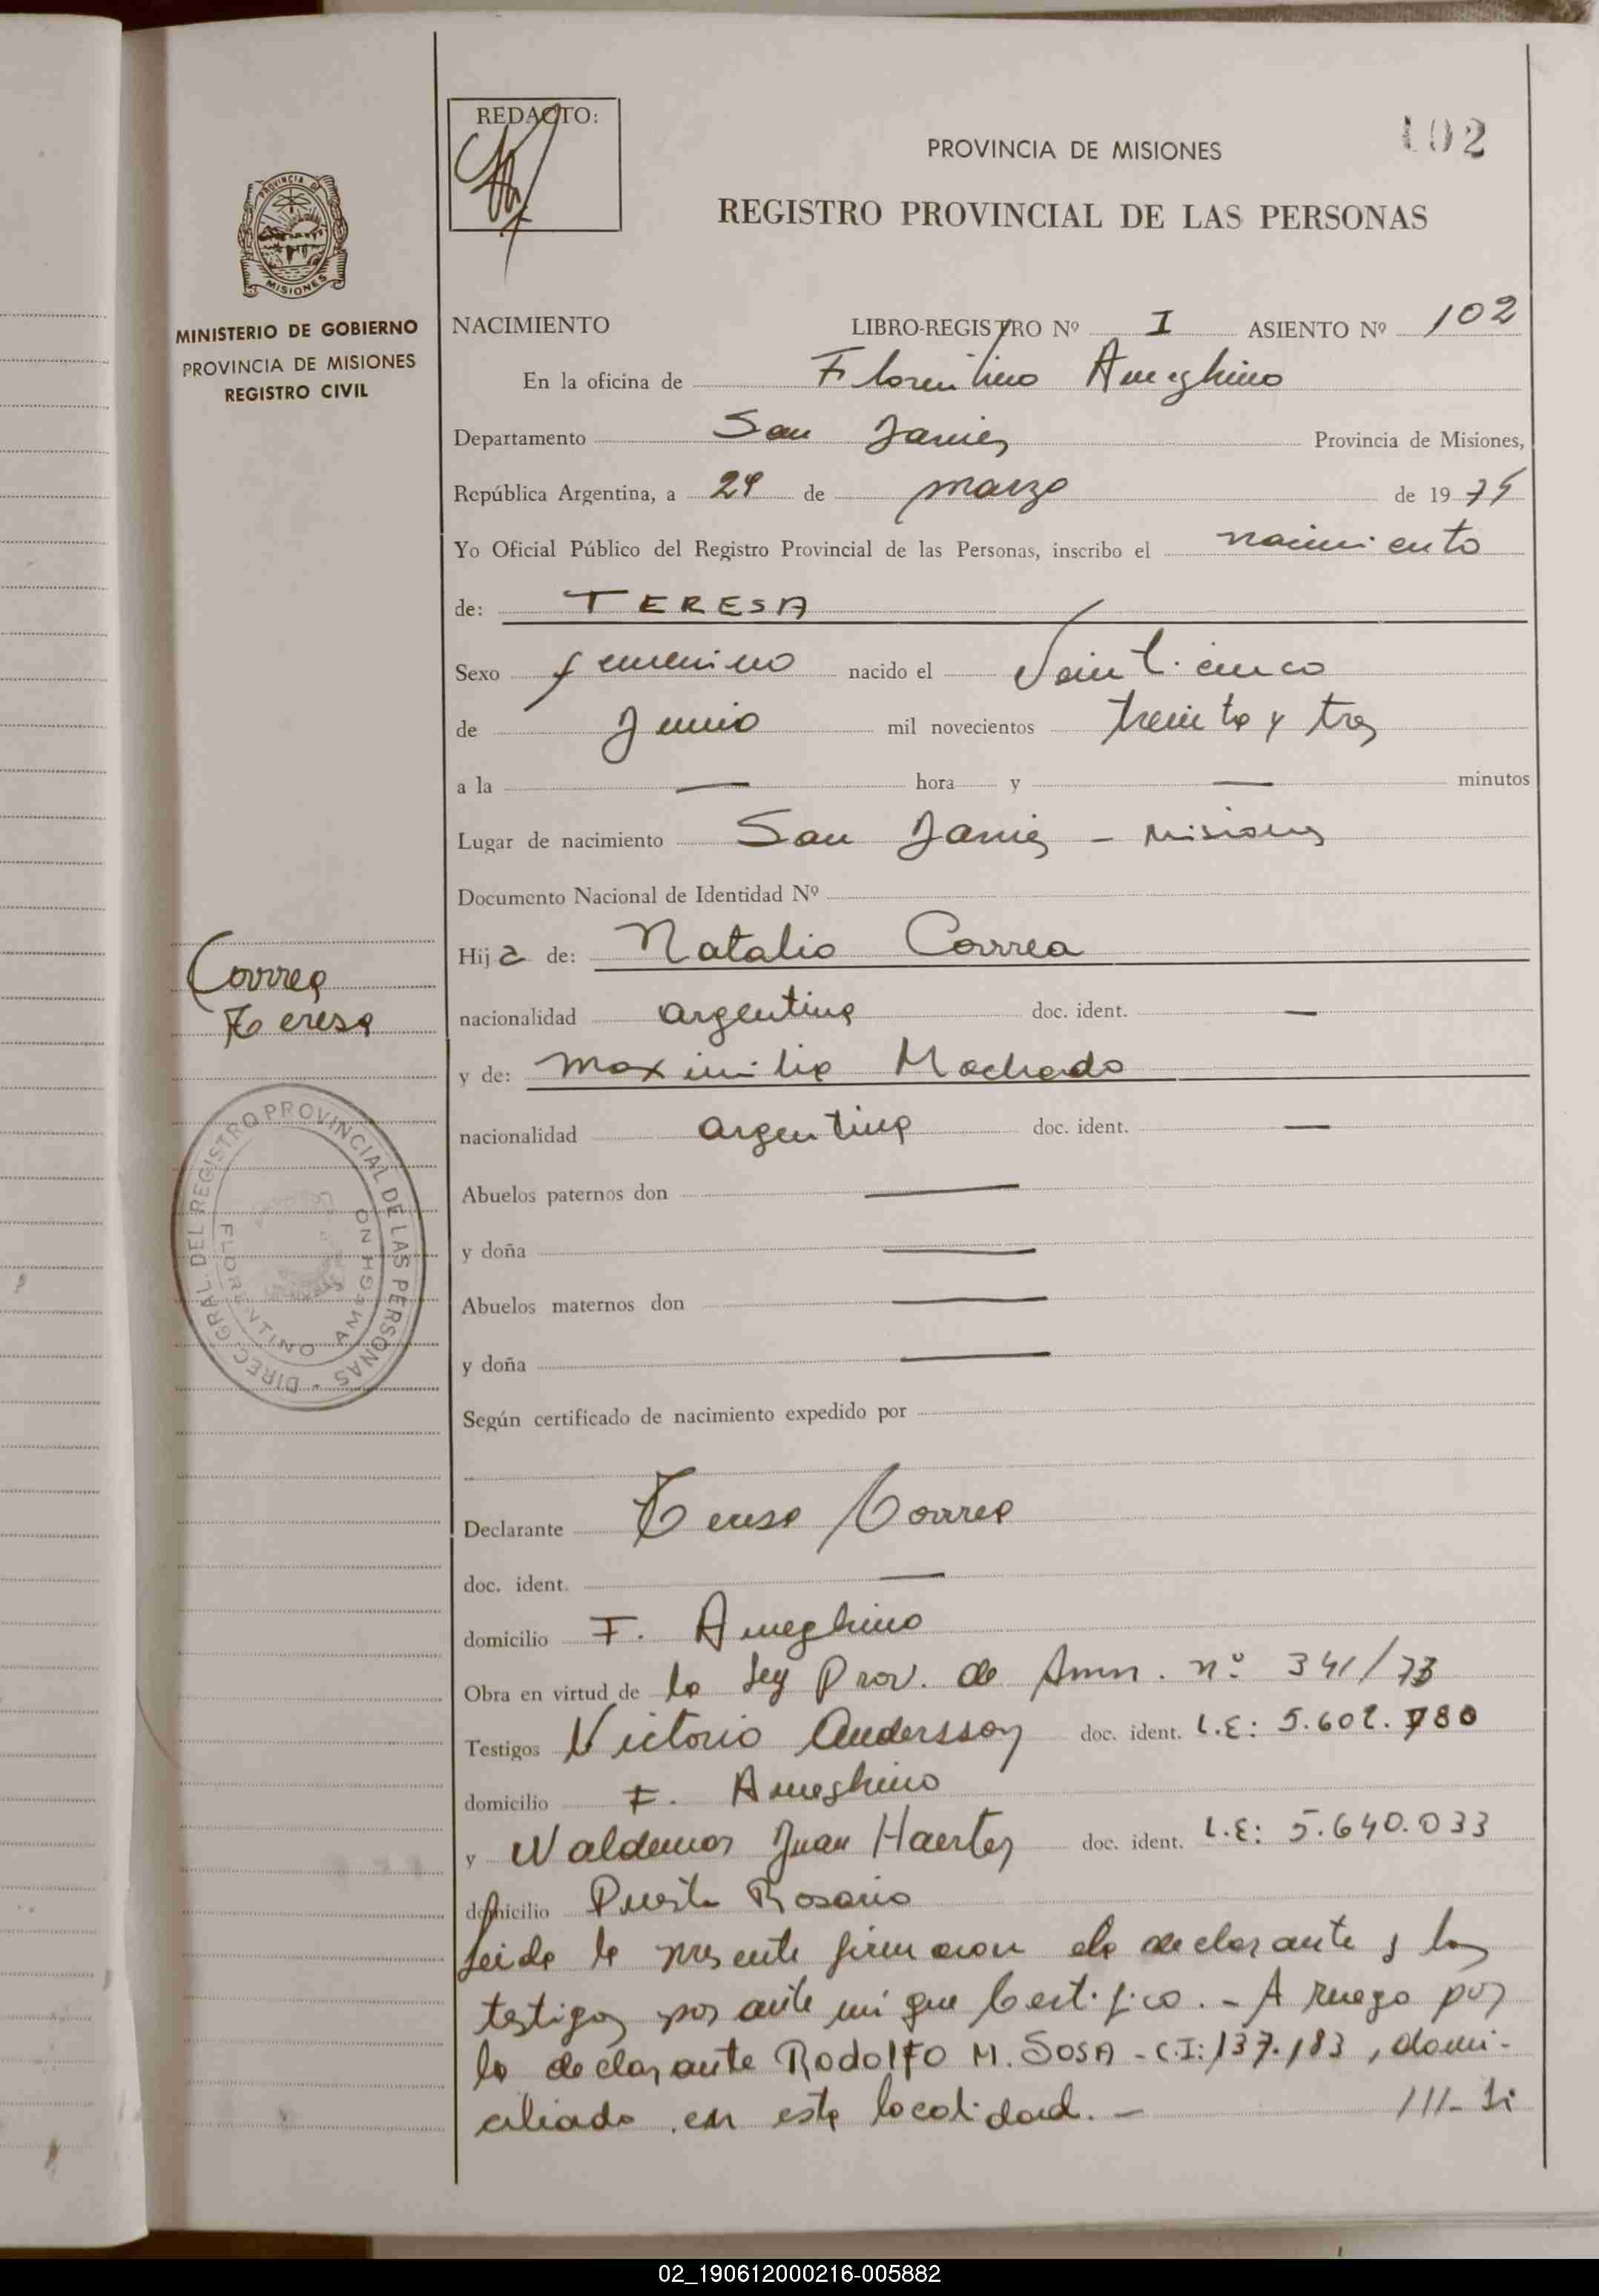 REDACTO:
102
PROVINCIA DE MISIONES
REGISTRO PROVINCIAL DE LAS PERSONAS
PROVINCIA DE
MISIONES
MINISTERIO DE GOBIERNO
PROVINCIA DE MISIONES
REGISTRO CIVIL
NACIMIENTO LIBRO-REGISTRO Nº I ASIENTO Nº 102
En la oficina de Florentino Ameghino
Departamento San Javier Provincia de Misiones,
República Argentina, a 24 de marzo de 1975
Yo Oficial Público del Registro Provincial de las Personas, inscribo el nacimiento
de: TERESA
Sexo femenino nacido el Veinticinco
de Junio mil novecientos treinta y tres
a la — hora y — minutos
Lugar de nacimiento San Javier - Misiones
Documento Nacional de Identidad Nº
Hija de: Natalio Correa
Correa
Teresa
nacionalidad argentina doc. ident. —
y de: Maximilia Machado
nacionalidad argentina doc. ident. —
DIREC. GRAL. DEL REGISTRO PROVINCIAL DE LAS PERSONAS
FLORENTINO AMEGHINO
Abuelos paternos don —
y doña —
Abuelos maternos don —
y doña —
Según certificado de nacimiento expedido por
Declarante Teresa Correa
doc. ident. —
domicilio F. Ameghino
Obra en virtud de la Ley Prov. de Amn. nº 341/73
Testigos Victorio Andersson doc. ident. L.E: 5.602.780
domicilio F. Ameghino
y Waldemar Juan Haerter doc. ident. L.E: 5.640.033
domicilio Puerto Rosario
Leida la presente firmaron la declarante y los
testigos por ante mi que Certifico. - A ruego por
la declarante Rodolfo M. SOSA - C.I: 137.183, domi-
ciliado en esta localidad. - ///- Si
02_190612000216-005882